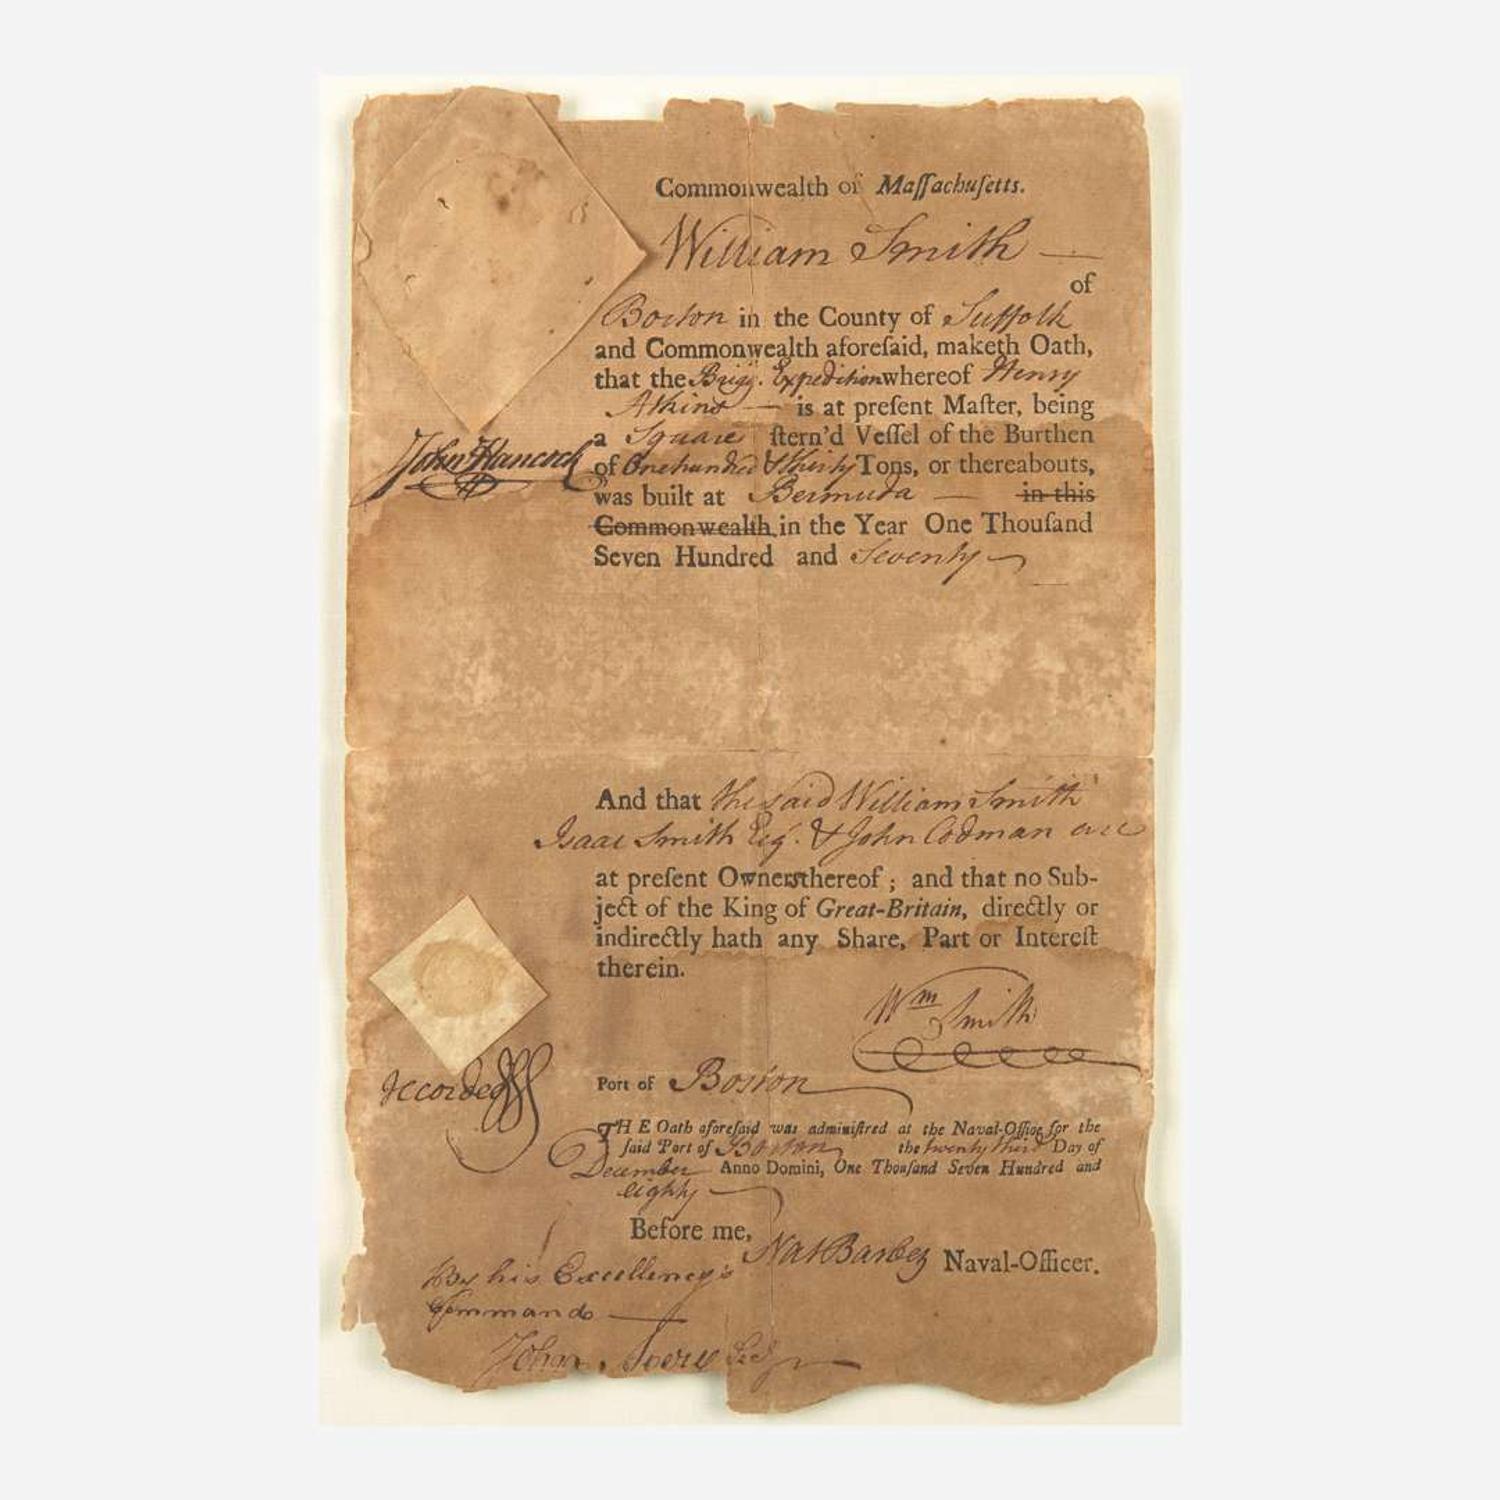 Commonwealth of Maſſachuſetts.
William Smith —
of
Boston in the County of Suffolk
and Commonwealth aforeſaid, maketh Oath,
that the Brigg. Expedition whereof Henry
Atkins — is at preſent Maſter, being
a Square ſtern'd Veſſel of the Burthen
John Hancock
of One hundred & thirty Tons, or thereabouts,
was built at Bermuda — in this
Commonwealth in the Year One Thouſand
Seven Hundred and Seventy —
And that the said William Smith
Isaac Smith Esq. & John Codman are
at preſent Owners thereof ; and that no Sub-
ject of the King of Great-Britain, directly or
indirectly hath any Share, Part or Intereſt
therein.
Wm Smith
Recorded
Port of Boston
THE Oath aforeſaid was adminiſtred at the Naval-Office for the
ſaid Port of Boston the twenty third Day of
December Anno Domini, One Thouſand Seven Hundred and
eighty —
Before me, Nat Barber Naval-Officer.
By his Excellency's
Command —
John Avery Secy